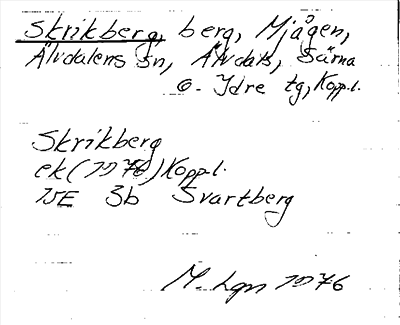 Skrikberg, berg, Mjågen,
Älvdalens sn, Älvdals, Särna
o. Idre tg, Kopp.l.
Skrikberg
ek (1976) Kopp.l.
15E 3b Svartberg
M. Lgn 1976